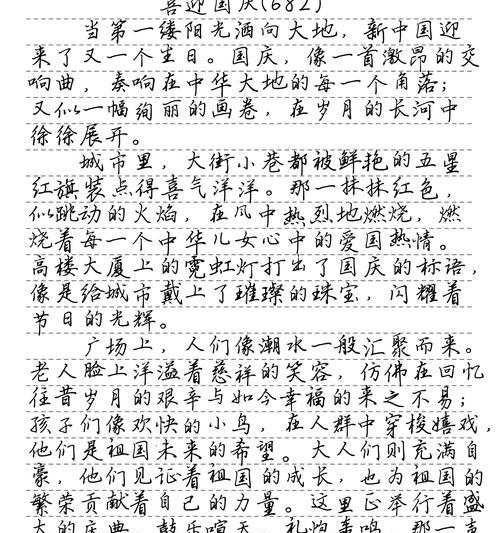 喜迎国庆(682)
当第一缕阳光洒向大地，新中国迎
来了又一个生日。国庆，像一首激昂的交
响曲，奏响在中华大地的每一个角落；
又似一幅绚丽的画卷，在岁月的长河中
徐徐展开。
城市里，大街小巷都被鲜艳的五星
红旗装点得喜气洋洋。那一抹抹红色，
似跳动的火焰，在风中热烈地燃烧，燃
烧着每一个中华儿女心中的爱国热情。
高楼大厦上的霓虹灯打出了国庆的标语，
像是给城市戴上了璀璨的珠宝，闪耀着
节日的光辉。
广场上，人们像潮水一般汇聚而来。
老人脸上洋溢着慈祥的笑容，仿佛在回忆
往昔岁月的艰辛与如今幸福的来之不易；
孩子们像欢快的小鸟，在人群中穿梭嬉戏，
他们是祖国未来的希望。大人们则充满自
豪，他们见证着祖国的成长，也为祖国的
繁荣贡献着自己的力量。这里正举行着盛
大的庆典，鼓乐喧天，礼炮轰鸣，那一声